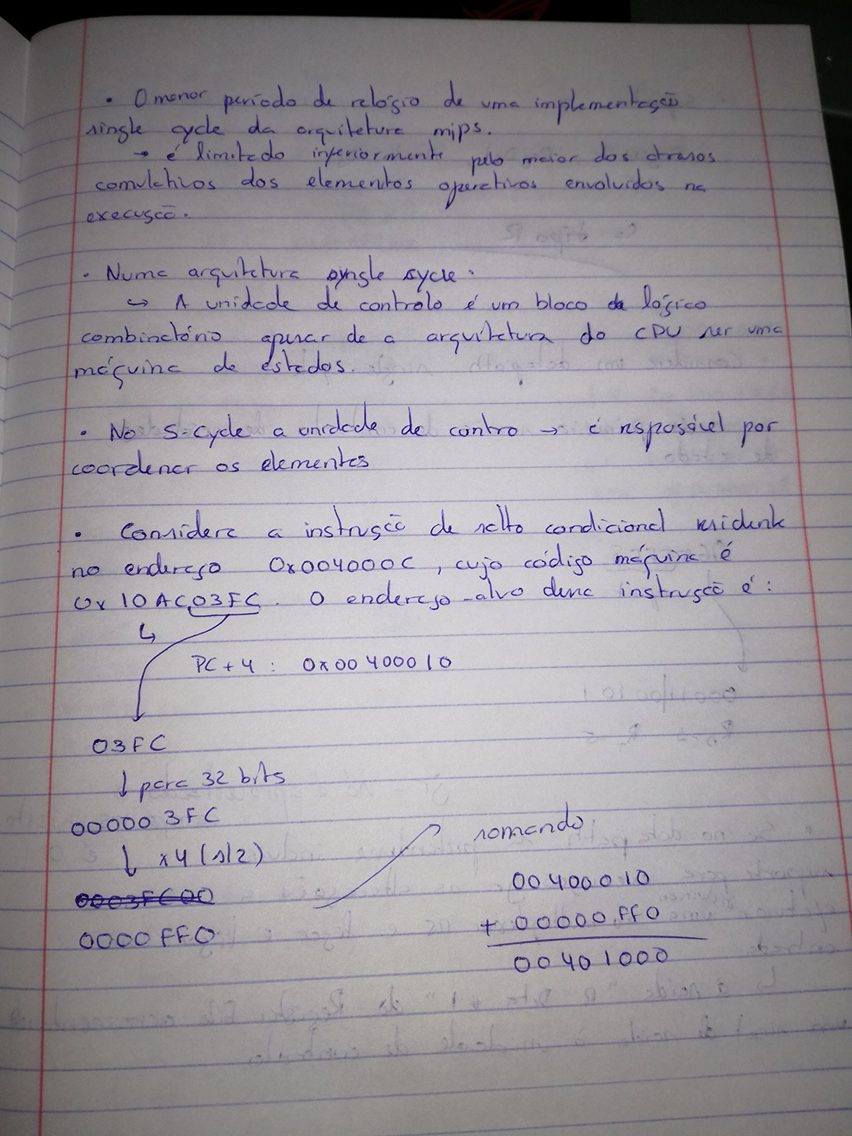 • O menor período de relógio de uma implementação
single cycle da arquitetura mips.
→ é limitado inferiormente pelo maior dos atrasos
comulativos dos elementos operativos envolvidos na
execução.
• Numa arquitetura single cycle:
↳ A unidade de controlo é um bloco de lógico
combinatório apesar de a arquitetura do CPU ser uma
máquina de estados.
• No S-cycle a unidade de contro → é responsável por
coordenar os elementos
• Considere a instrução de salto condicional residente
no endereço 0x004000C, cujo código máquina é
0x10AC03FC. O endereço-alvo dessa instrução é:
↳
PC+4: 0x00400010
03FC
↓ para 32 bits
000003FC
↓ x4 (sl2)
0000FF0
somando
00400010
+ 00000FF0
00401000